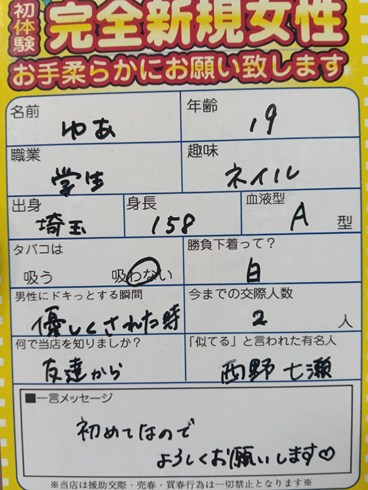 初体験
完全新規女性
お手柔らかにお願い致します
名前
ゆあ
年齢
19
職業
学生
趣味
ネイル
出身
埼玉
身長
158
血液型
A 型
タバコは
吸う 吸わない
勝負下着って?
白
男性にドキっとする瞬間
優しくされた時
今までの交際人数
2 人
何で当店を知りましたか?
友達から
「似てる」と言われた有名人
西野七瀬
■一言メッセージ
初めてなので
よろしくお願いします♡
※当店は援助交際・売春・買春行為は一切禁止となります※